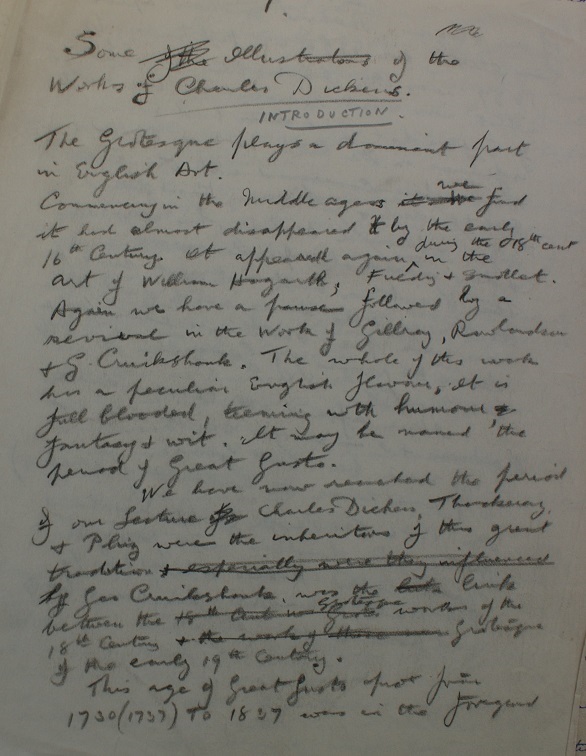 Some of the Illustrators of the
Works of Charles Dickens.
INTRODUCTION.
The Grotesque plays a dominant part
in English Art.
Commencing in the Middle ages we find
it had almost disappeared by the early
16th Century. It appeared again, during the 18th cent in the
art of William Hogarth, Fielding & Smollet.
Again we have a pause followed by a
revival in the Work of Gillray, Rowlandson
& G. Cruikshank. The whole of this work
has a peculiar English flavour, it is
full blooded, teeming with humour &
fantasy & wit. It may be named the
period of Great Gusto.
We have now reached the period
of our Lecture Charles Dickens, Thackeray,
& Phiz were the inheritors of this great
tradition & especially were they influenced
by Geo Cruikshank, was the link
between the Grotesque works of the
18th Century & the work of Grotesque
of the early 19th Century.
This age of Great Gusto from
1730 (1737) TO 1837 was in the